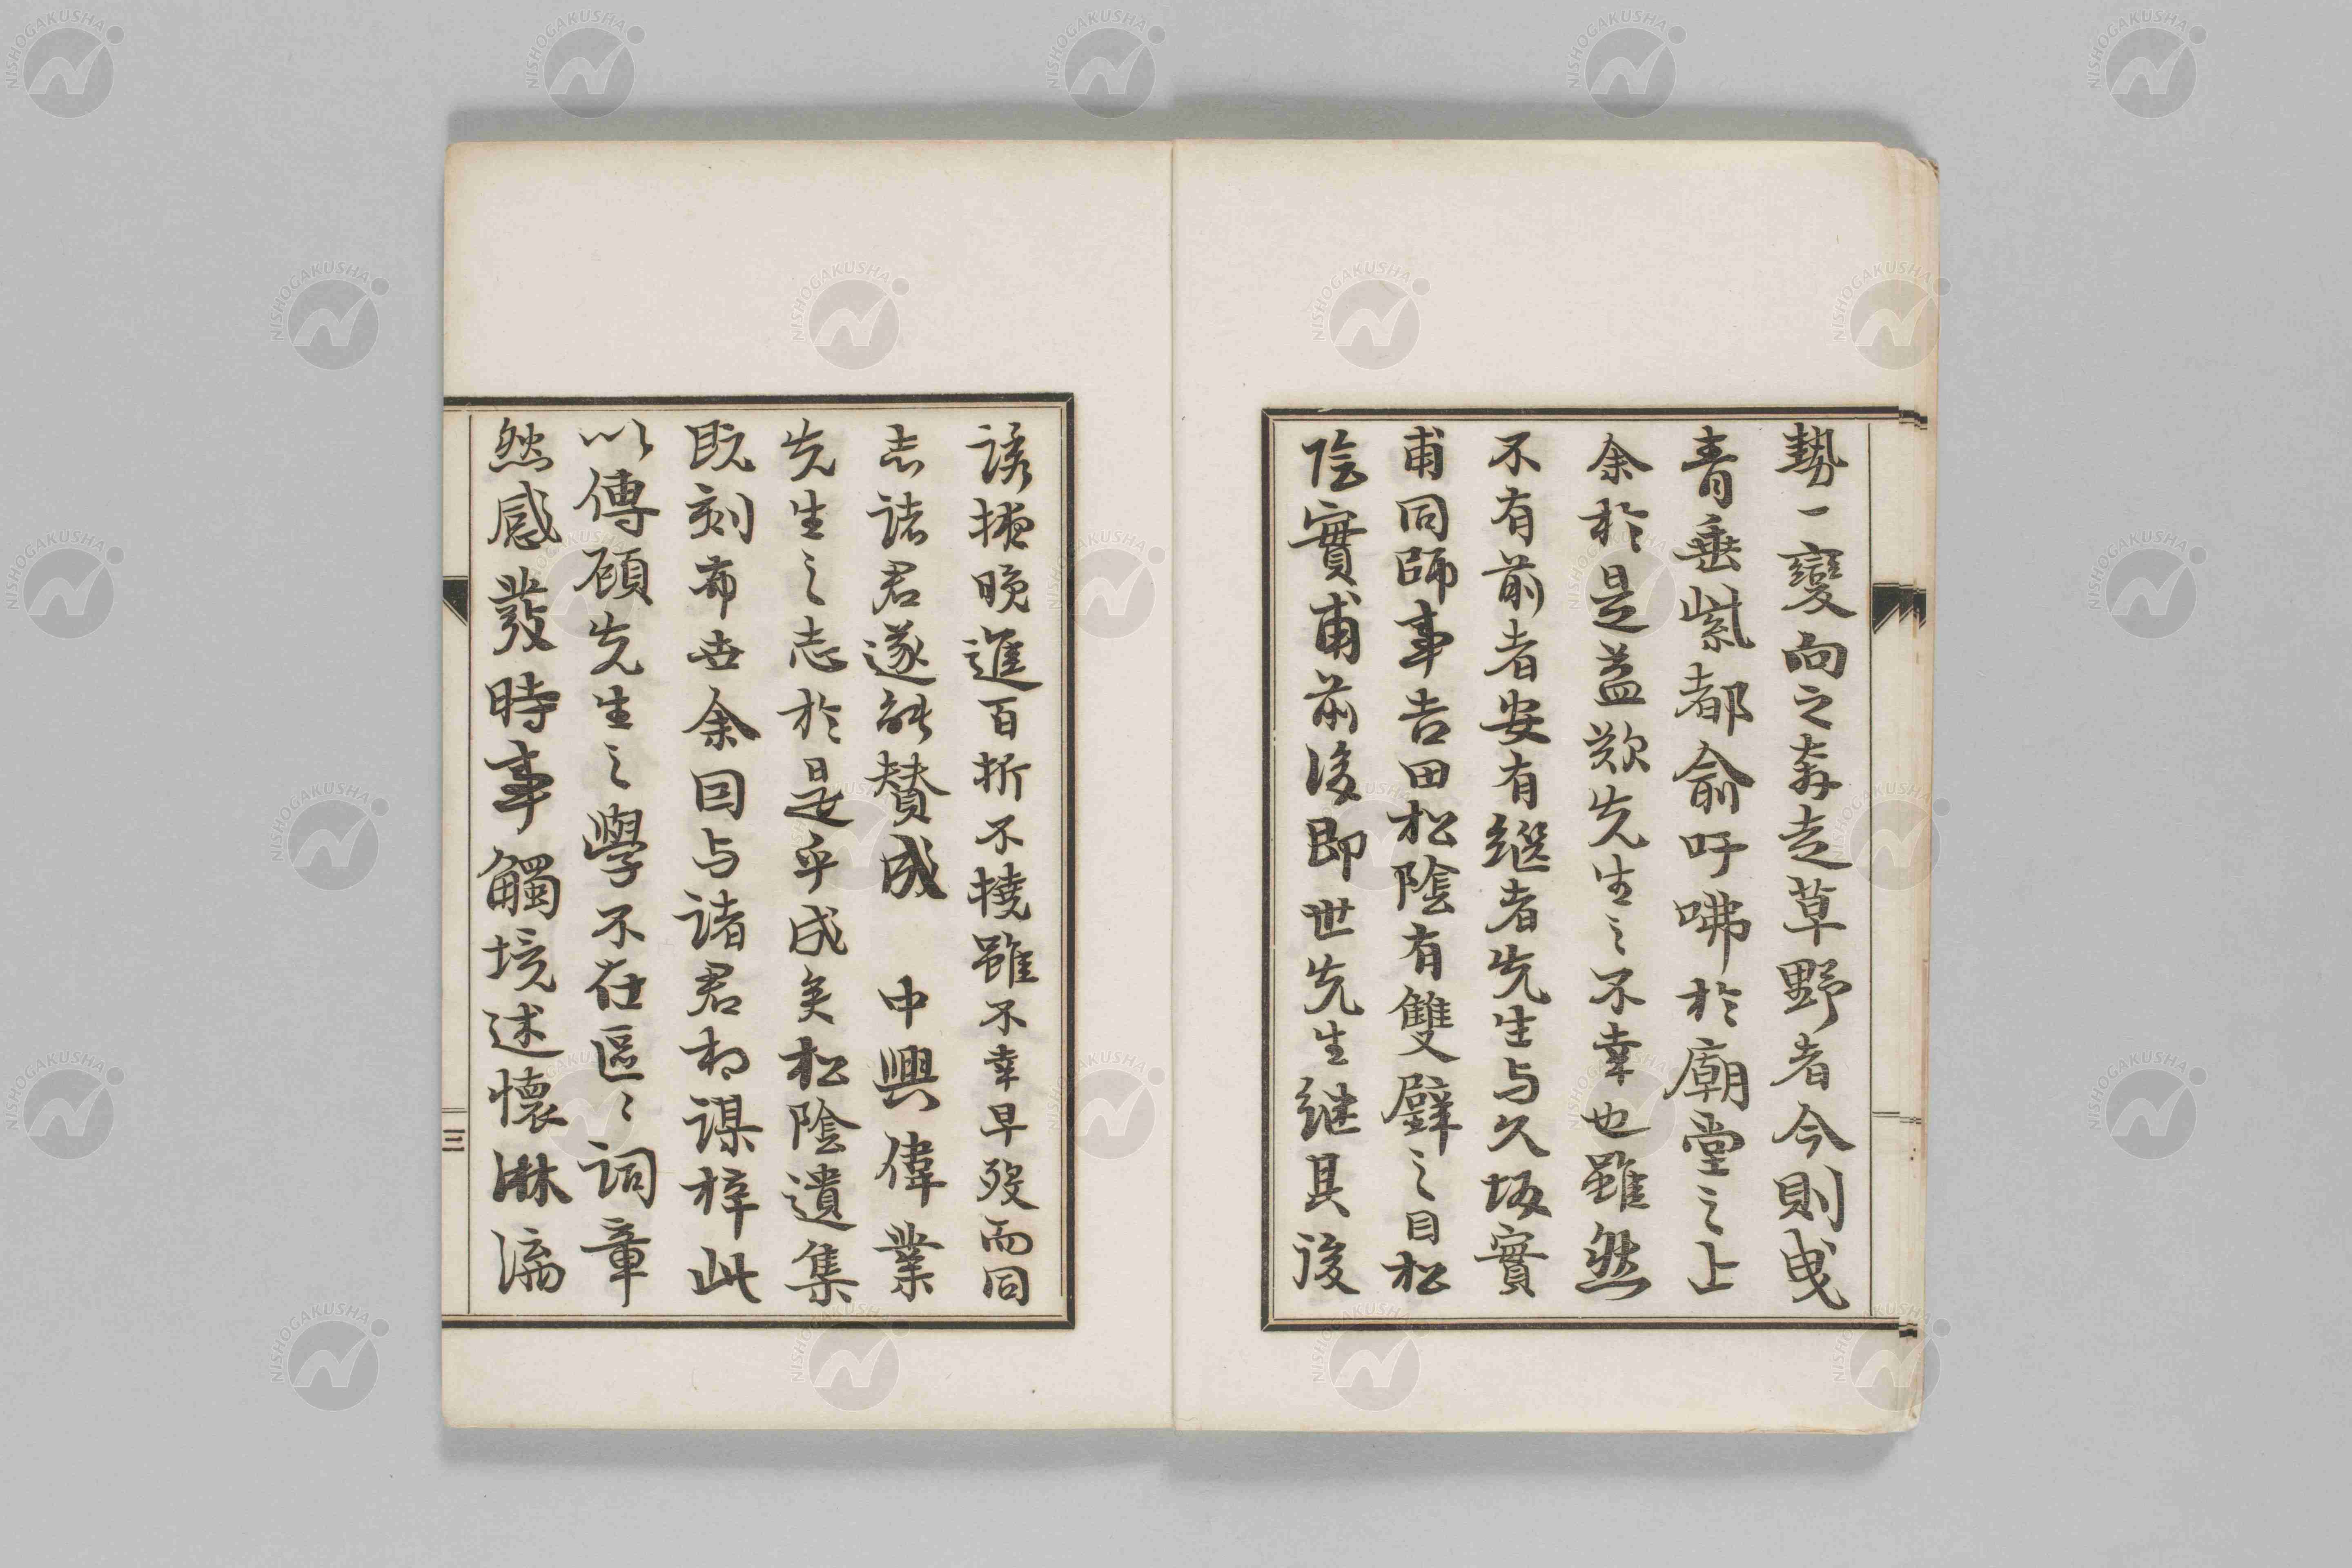 勢一變向之奔走草野者今則曳
青垂紫都兪吁咈於廟堂之上
余於是益歎先生之不幸也雖然
不有前者安有繼者先生与久坂實
甫同師事吉田松陰有雙璧之目松
陰實甫前後即世先生継其後
誘掖晩進百折不撓雖不幸早歿而同
志諸君遂能賛成　中興偉業
先生之志於是乎成矣松陰遺集
既刻布世余因与諸君相謀梓此
以傳顧先生之學不在區〻詞章
然感發時事觸境述懷淋漓
三
NISHOGAKUSHA